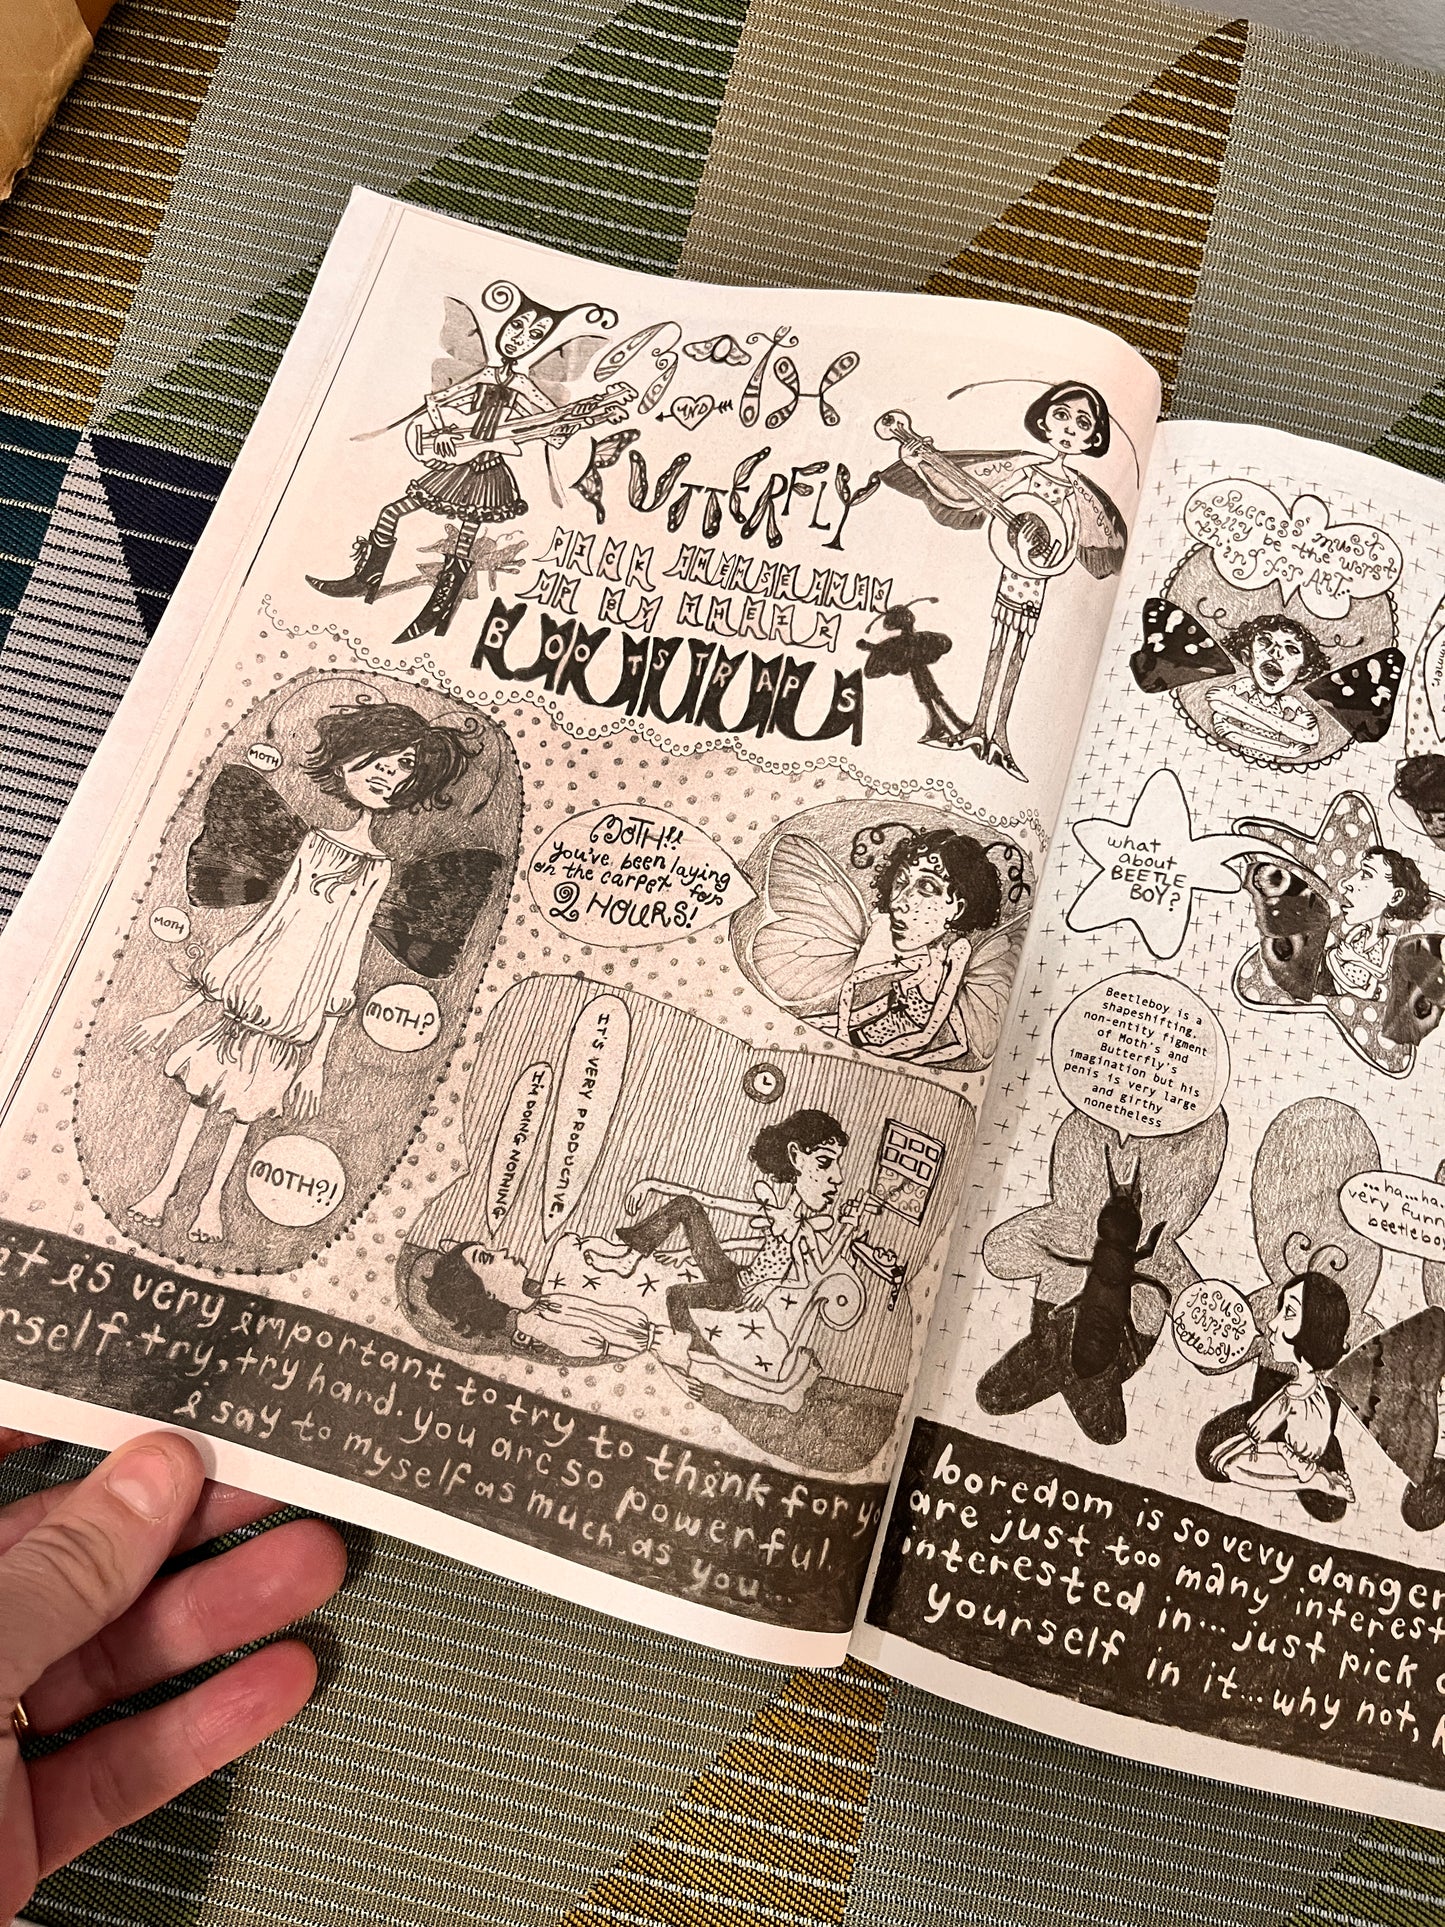 MOTH
AND
BUTTERFLY
PICK THEMSELVES
UP BY THEIR
BOOTSTRAPS
LOVE
each other
MOTH
MOTH
MOTH?
MOTH?!
MOTH!!
you've been laying
on the carpet for
2 HOURS!
I'M DOING NOTHING
IT'S VERY PRODUCTIVE.
it is very important to try to think for yo
rself. try, try hard. you are so powerful.
i say to myself as much as you...
Success must
really be the worst
thing for ART...
what
about
BEETLE
BOY?
Beetleboy is a
shapeshifting,
non-entity figment
of Moth's and
Butterfly's
imagination but his
penis is very large
and girthy
nonetheless
...ha...ha..
very funn
beetleboy
jesus
christ
beetleboy...
boredom is so very danger
are just too many interest
interested in... just pick
yourself in it... why not,